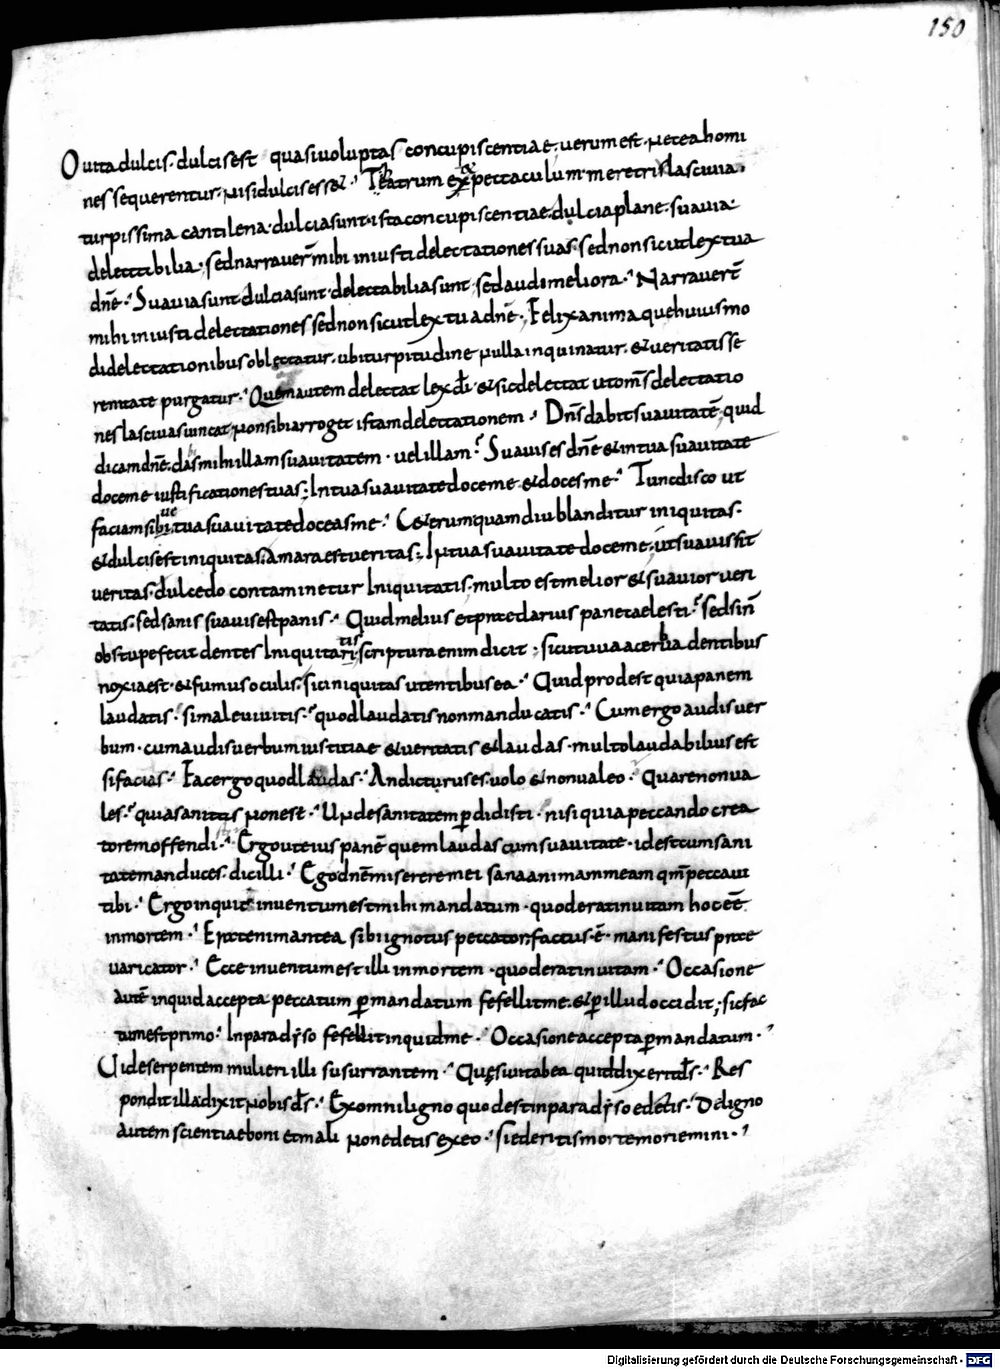 150
O uita dulcis. dulcis est quasi uoluptas concupiscentiae. uerum est. nec ea homi
nes sequerentur. nisi dulcis esset. Teatrum expectaculum. meretrix lasciuia.
turpissima cantilena. dulcia sunt ista concupiscentiae. dulcia plane. suauia.
delectabilia. sed narrauer̄ mihi iniusti delectationes suas. sed non sicut lex tua
dn̄e. Suauia sunt dulcia sunt. delectabilia sunt. sed audi meliora. Narrauer̄
mihi iniusti delectationes sed non sicut lex tua dn̄e. Felix anima que huius mo
di delectationibus oblectatur. ubi turpitudine nulla inquinatur. & ueritatis se
renitate purgatur. Quem autem delectat lex dī. & sic delectat ut om̄s delectatio
nes lasciuas uincat. non sibi arroget istam delectationem. Dn̄s dabit suauitatē. quid
dicam dn̄e. das mihi illam suauitatem. uel illam. Suauis es dn̄e & in tua suauitate
doceme iustificationes tuas; In tua suauitate doceme. & doces me. Tunc disco ut
faciam si bi tua suauitate doceas me. Ceterum quamdiu blanditur iniquitas.
& dulcis est iniquitas. amara est ueritas; In tua suauitate doceme. ut suauis sit
ueritas. dulcedo contaminetur Iniquitatis. multo est melior & suauior ueri
tatis. sed sanis suauis est panis. Quid melius et preclarius pane caelesti. sed si n̄
obstupefecit dentes Iniquitatis scriptura enim dicit; sicut uua acerba dentibus
noxia est. & fumus oculis. sic iniquitas utentibus ea. Quid prodest quia panem
laudatis. si male uiuitis. quod laudatis non manducatis. Cum ergo audis uer
bum. cum audis uerbum iustitiae & ueritatis & laudas. multo laudabilius est
si facias. Fac ergo quod laudas. An dicturus es. uolo & non ualeo. Quare non ua
les. quia sanitas non est. Unde sanitatem perdidisti. nisi quia peccando crea
torem offendi. Ergo ut eius panē quem laudas cum suauitate. id est cum sani
tate manduces. dic illi. Ego dn̄e miserere mei sana animam meam qm̄ peccaui
tibi. Ergo inquit inuentum est mihi mandatum. quod erat in uitam hoc eē
in mortem. Etenim antea sibi ignotus peccator. factus ē. manifestus pre
uaricator. Ecce inuentum est illi in mortem. quod erat in uitam. Occasione
autē inquid accepta peccatum p mandatum fefellit me. & p illud occidit; sic fac
tum est primo. In paradyso fefellit inquid me. Occasione accepta p mandatum.
Uide serpentem mulieri illi susurrantem. Quesiuit ab ea quid dixerit ds̄. Res
pondit illa dixit nobis ds̄. Ex omni ligno quod est in paradyso edetis. De ligno
autem scientiae boni et mali non edetis ex eo. si ederitis morte moriemini.
Digitalisierung gefördert durch die Deutsche Forschungsgemeinschaft - DFG